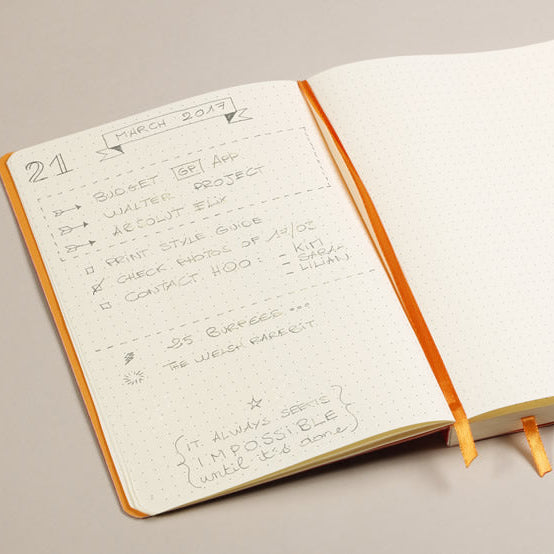 MARCH 2017
21
BUDGET GP APP
WALTER PROJECT
ABSOLUT ELIX
PRINT STYLE GUIDE
CHECK PHOTOS OF 10/03
CONTACT HOO:
- KIM
- SARAH
- LILIAN
25 BURPEES ...
THE WELSH RAREBIT
IT ALWAYS SEEMS
IMPOSSIBLE
until it's done